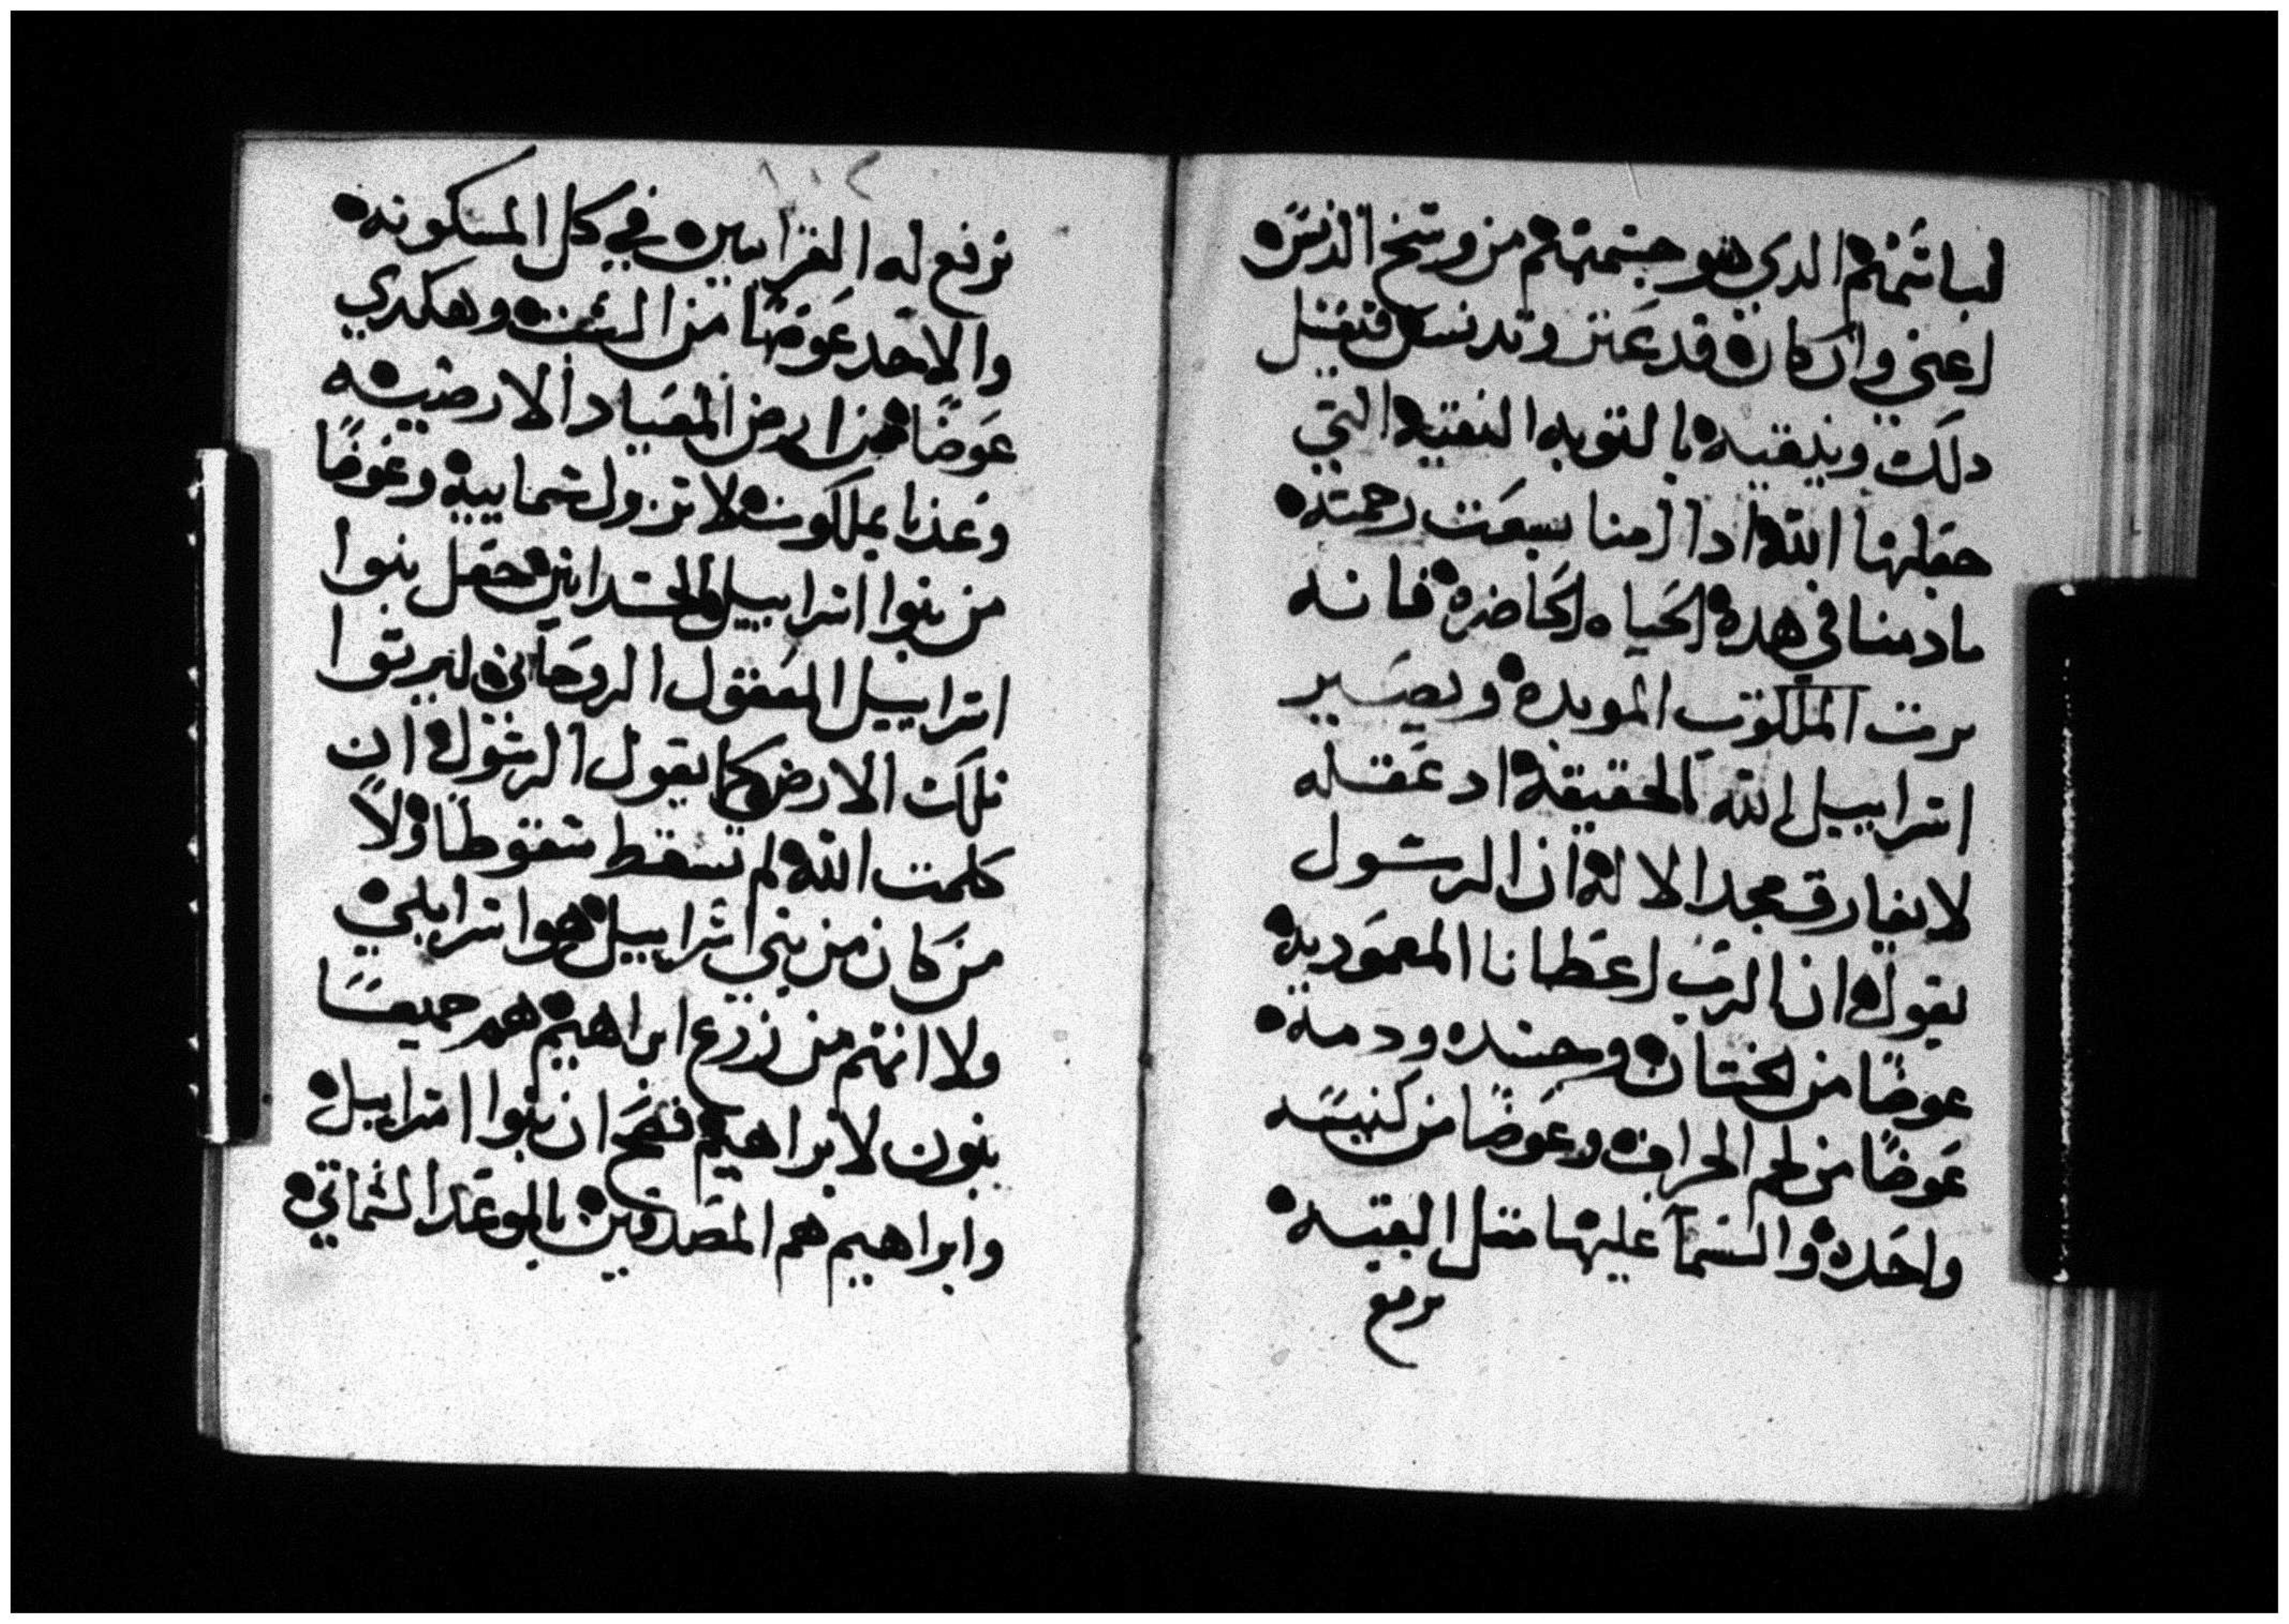 لباسهم الدي هو جسمهم من وسخ الدنس
اعني وان كان قد عتر وتدنس فيغسل
دلك وينقيه بالتوبه النقيه التي
جعلها الله ادا لمنا سبعت رحمته
مادمنا في هده الحياه الحاضره فانه
يرت الملكوت الموبده ويصير
اسراييل الله الحقيقه اد عقله
لايفارق مجد الاله ان الرسول
يقول ان الرب اعطانا المعموديه
عوضًا من الختان وجسده ودمه
عوضًا من لحم الخراف وعوضًا من كنيسه
واحده والسما عليها متل القبه
ترفع
ترفع له القرابين في كل المسكونه
والاحد عوضًا من السبت وهكدي
عوضًا من ارض الميعاد الارضيه
وعدنا بملكوت لا تزول سماييه وعوضًا
من بنوا اسراييل الجسدانين جعل بنوا
اسراييل المعقول الروحاني ليرتوا
تلك الارض كما يقول الرسول ان
كلمت الله لم تسقط سقوطا ولا
من كان من بني اسراييل هو اسرايلي
ولا انتم من زرع ابراهيم هم جميعًا
بنون لابراهيم فصح ان بنوا اسراييل
وابراهيم هم المصدقين بالموعد السماتي